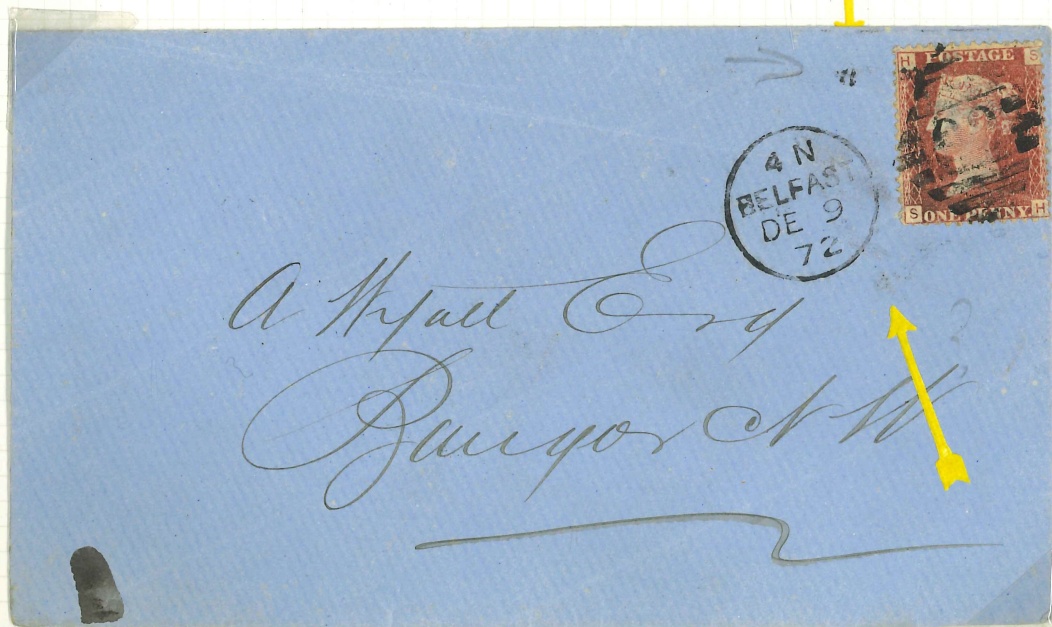 H POSTAGE S
S ONE PENNY H
4 N
BELFAST
DE 9
72
A Wyatt Esq
Bangor N W